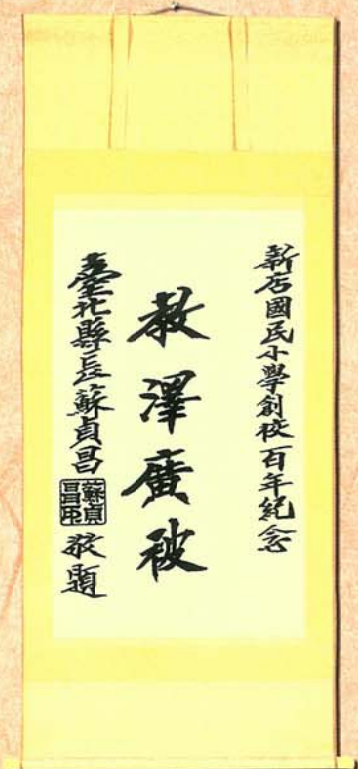 新店國民小學創校百年紀念
教澤廣被
臺北縣長蘇貞昌
蘇貞昌印
敬題